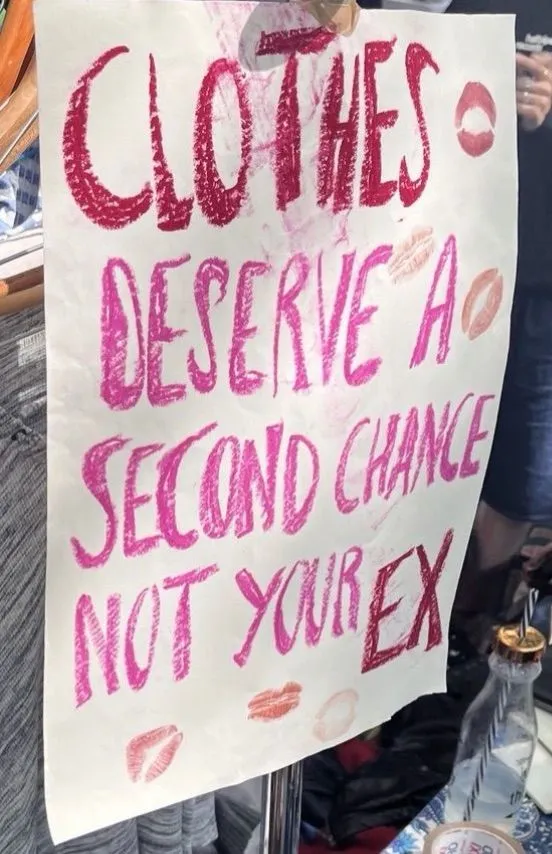 CLOTHES
DESERVE A
SECOND CHANCE
NOT YOUR EX